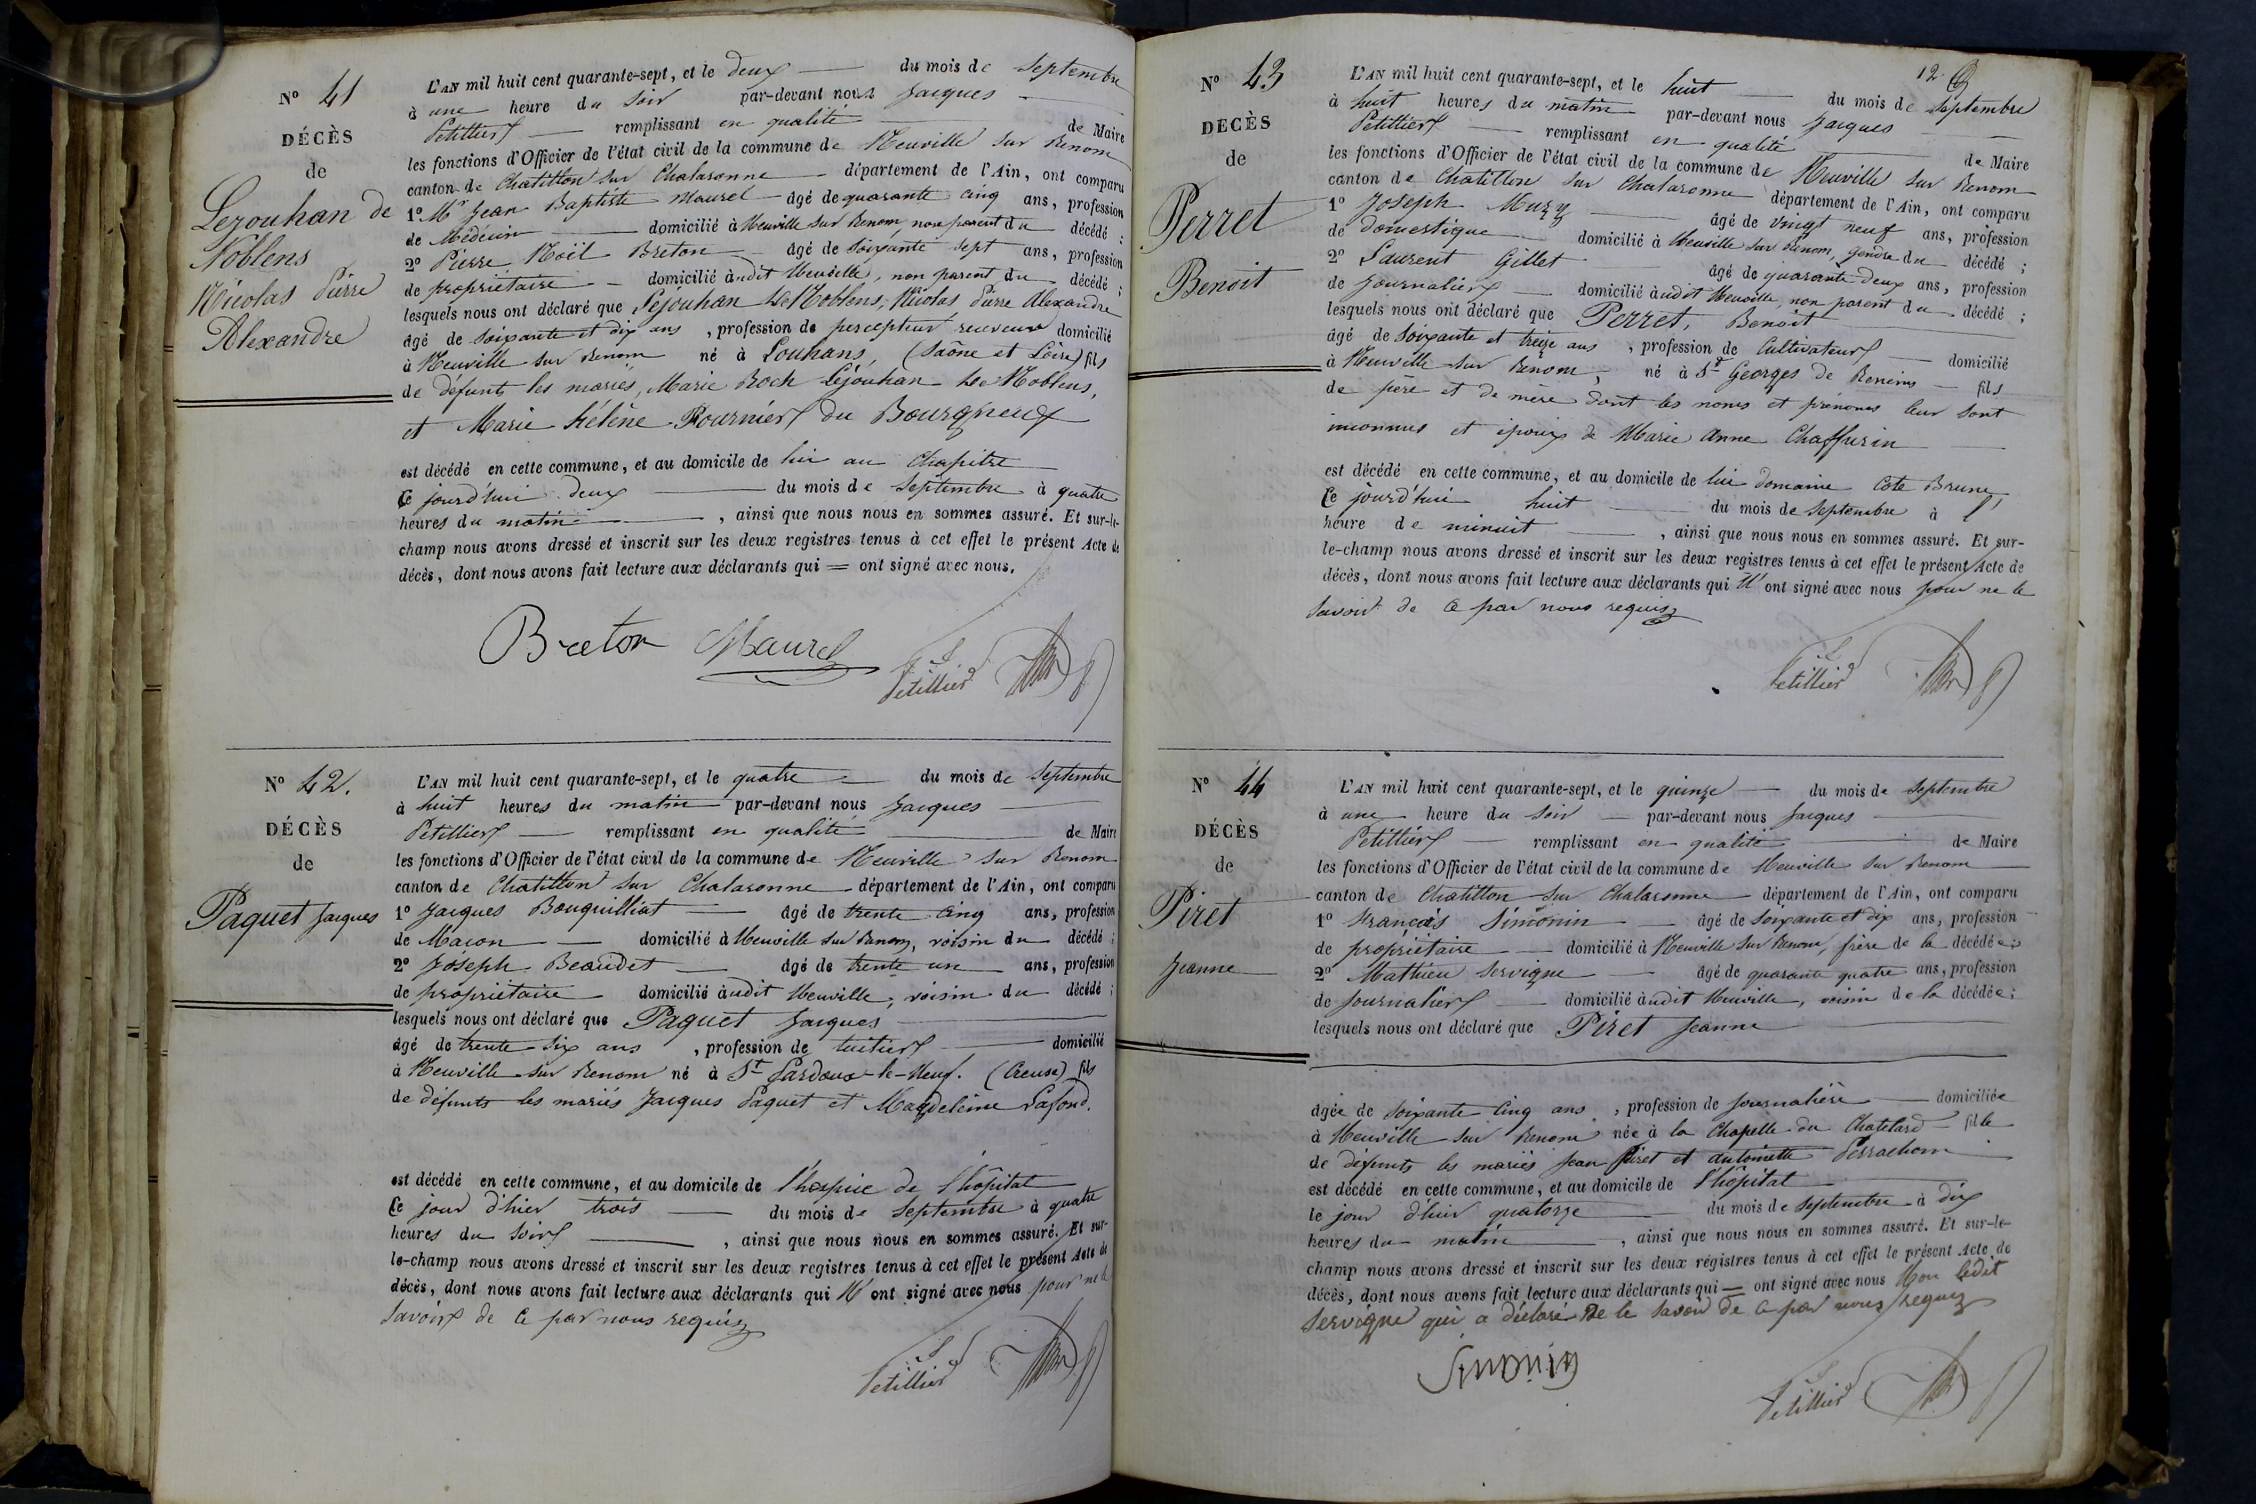 N° 41
DÉCÈS
de
Lejouhan de
Noblens
Nicolas Pierre
Alexandre
L'AN mil huit cent quarante-sept, et le deux du mois de Septembre
à une heure du soir par-devant nous Jacques
Petillier remplissant en qualité de Maire
les fonctions d'Officier de l'état civil de la commune de Neuville sur Renom
canton de Chatillon sur Chalaronne département de l'Ain, ont comparu
1° Mr Jean Baptiste Maurel âgé de quarante cinq ans, profession
de Médecin domicilié à Neuville sur Renom, non parent du décédé ;
2° Pierre Noël Breton âgé de soixante sept ans, profession
de propriétaire domicilié àudit Neuville, non parent du décédé ;
lesquels nous ont déclaré que Lejouhan De Noblens, Nicolas Pierre Alexandre
âgé de soixante et dix ans , profession de percepteur receveur domicilié
à Neuville sur Renom né à Louhans, (Saône et Loire) fils
de défunts les mariés, Marie Roch Lejouhan De Noblens,
et Marie Hélène Fournier du Bourgneuf
est décédé en cette commune, et au domicile de lui au Chapitre
Ce jourd'hui deux du mois de Septembre à quatre
heures du matin , ainsi que nous nous en sommes assuré. Et sur-le-
champ nous avons dressé et inscrit sur les deux registres tenus à cet effet le présent Acte de
décès, dont nous avons fait lecture aux déclarants qui = ont signé avec nous.
Breton Maurel Petillier
N° 42.
DÉCÈS
de
Paquet Jacques
L'AN mil huit cent quarante-sept, et le quatre du mois de Septembre
à huit heures du matin par-devant nous Jacques
Petillier remplissant en qualité de Maire
les fonctions d'Officier de l'état civil de la commune de Neuville sur Renom
canton de Chatillon sur Chalaronne département de l'Ain, ont comparu
1° Jacques Bouquilliat âgé de trente cinq ans, profession
de Macon domicilié à Neuville sur Renom, voisin du décédé ;
2° Joseph Beaudet âgé de trente un ans, profession
de propriétaire domicilié àudit Neuville, voisin du décédé ;
lesquels nous ont déclaré que Paquet Jacques
âgé de trente six ans , profession de tuilier domicilié
à Neuville sur Renom né à St Pardoux-le-Neuf. (Creuse) fils
de défunts les mariés Jacques Paquet et Magdeleine Lafond.
est décédé en cette commune, et au domicile de l'hospice de l'hôpital
Ce jour d'hier trois du mois de Septembre à quatre
heures du soir , ainsi que nous nous en sommes assuré. Et sur-
le-champ nous avons dressé et inscrit sur les deux registres tenus à cet effet le présent Acte de
décès, dont nous avons fait lecture aux déclarants qui n' ont signé avec nous pour ne le
savoir de ce par nous requis
Petillier
12
N° 43
DECÈS
de
Perret
Benoit
L'AN mil huit cent quarante-sept, et le huit du mois de Septembre
à huit heures du matin par-devant nous Jacques
Petillier remplissant en qualité de Maire
les fonctions d'Officier de l'état civil de la commune de Neuville sur Renom
canton de Chatillon sur Chalaronne département de l'Ain, ont comparu
1° Joseph Muzy âgé de vingt neuf ans, profession
de domestique domicilié à Neuville sur Renom, gendre du décédé ;
2° Laurent Gillet âgé de quarante-deux ans, profession
de Journalier domicilié àudit Neuville, non parent du décédé ;
lesquels nous ont déclaré que Perret, Benoit
âgé de soixante et treize ans , profession de Cultivateur domicilié
à Neuville sur Renom, né à St Georges de Reneins fils
de père et de mère dont les noms et prénoms leur sont
inconnus et époux de Marie Anne Chaffurin
est décédé en cette commune, et au domicile de lui domaine Cote Brune
Ce jourd'hui huit du mois de Septembre à l'
heure de minuit , ainsi que nous nous en sommes assuré. Et sur-
le-champ nous avons dressé et inscrit sur les deux registres tenus à cet effet le présent Acte de
décès, dont nous avons fait lecture aux déclarants qui n' ont signé avec nous pour ne le
savoir de ce par nous requis
Petillier
N° 44
DÉCÈS
de
Piret
Jeanne
L'AN mil huit cent quarante-sept, et le quinze du mois de Septembre
à une heure du soir par-devant nous Jacques
Petillier remplissant en qualité de Maire
les fonctions d'Officier de l'état civil de la commune de Neuville sur Renom
canton de Chatillon sur Chalaronne département de l'Ain, ont comparu
1° Français Simonin âgé de soixante et dix ans, profession
de propriétaire domicilié à Neuville sur Renom, frère de la décédée ;
2° Mathieu Servigne âgé de quarante quatre ans, profession
de Journalier domicilié àudit Neuville, voisin de la décédée ;
lesquels nous ont déclaré que Piret Jeanne
agée de soixante cinq ans , profession de Journalière domiciliée
à Neuville sur Renom née à la Chapelle du Chatelard fille
de défunts les mariés Jean Piret et Antoinette Perrachon
est décédé en cette commune, et au domicile de l'hôpital
le jour d'hier quatorze du mois de Septembre à dix
heures du matin , ainsi que nous nous en sommes assuré. Et sur-le-
champ nous avons dressé et inscrit sur les deux régistres tenus à cet effet le présent Acte de
décès, dont nous avons fait lecture aux déclarants qui = ont signé avec nous Non ledit
Servigne qui a déclaré ne le savoir de ce par nous requis
Simonin
Petillier